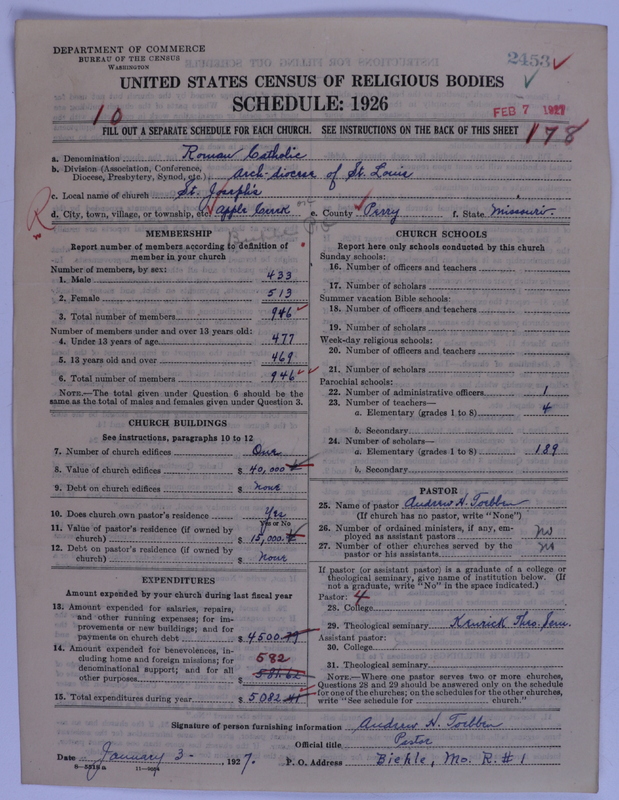 DEPARTMENT OF COMMERCE
BUREAU OF THE CENSUS
WASHINGTON
2453
UNITED STATES CENSUS OF RELIGIOUS BODIES
SCHEDULE: 1926
10
FEB 7 1927
FILL OUT A SEPARATE SCHEDULE FOR EACH CHURCH. SEE INSTRUCTIONS ON THE BACK OF THIS SHEET
178
a. Denomination Roman Catholic
b. Division (Association, Conference, Diocese, Presbytery, Synod, etc.) Arch-diocese of St. Louis
c. Local name of church St. Joseph's
R
d. City, town, village, or township, etc. Apple Creek e. County Perry f. State Missouri.
MEMBERSHIP
Report number of members according to definition of
member in your church
Number of members, by sex:
1. Male 433
2. Female 513
3. Total number of members 946
Number of members under and over 13 years old:
4. Under 13 years of age 477
5. 13 years old and over 469
6. Total number of members 946
NOTE.—The total given under Question 6 should be
same as the total of males and females given under Question 3.
CHURCH BUILDINGS
See instructions, paragraphs 10 to 12
7. Number of church edifices One
8. Value of church edifices $ 40,000
9. Debt on church edifices $ none
10. Does church own pastor's residence Yes
Yes or No
11. Value of pastor's residence (if owned by
church) $ 15,000
12. Debt on pastor's residence (if owned by
church) $ none
EXPENDITURES
Amount expended by your church during last fiscal year
13. Amount expended for salaries, repairs,
and other running expenses; for im-
provements or new buildings; and for
payments on church debt $ 4500
14. Amount expended for benevolences, in-
cluding home and foreign missions; for
denominational support; and for all
other purposes $ 582
15. Total expenditures during year $ 5082
CHURCH SCHOOLS
Report here only schools conducted by this church
Sunday schools:
16. Number of officers and teachers
17. Number of scholars
Summer vacation Bible schools:
18. Number of officers and teachers
19. Number of scholars
Week-day religious schools:
20. Number of officers and teachers
21. Number of scholars
Parochial schools:
22. Number of administrative officers 1
23. Number of teachers—
a. Elementary (grades 1 to 8) 4
b. Secondary
24. Number of scholars—
a. Elementary (grades 1 to 8) 189
b. Secondary
PASTOR
25. Name of pastor Andrew H. Toebben
(If church has no pastor, write "None")
26. Number of ordained ministers, if any, em-
ployed as assistant pastors no
27. Number of other churches served by the
pastor or his assistants no
If pastor (or assistant pastor) is a graduate of a college or
theological seminary, give name of institution below. (If
not a graduate, write "No" in the space indicated.)
Pastor: 4
28. College
29. Theological seminary Kenrick Theo. Sem.
Assistant pastor:
30. College
31. Theological seminary
NOTE.—Where one pastor serves two or more churches,
Questions 28 and 29 should be answered only on the schedule
for one of the churches; on the schedules for the other churches,
write "See schedule for church."
Signature of person furnishing information Andrew H. Toebben
Official title Pastor
Date January 3- 1927. P. O. Address Biehle, Mo. R. #1
8-5518a 11-9084